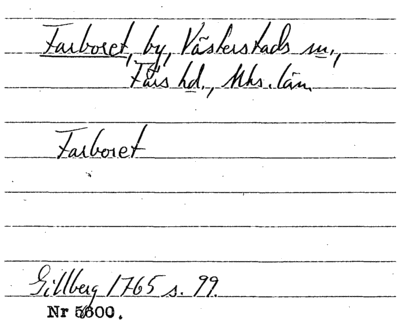 Farboret, by, Västerstads sn.,
Färs hd., Mhs. län
Farboret
Gillberg 1765 s. 99.
Nr 5600.